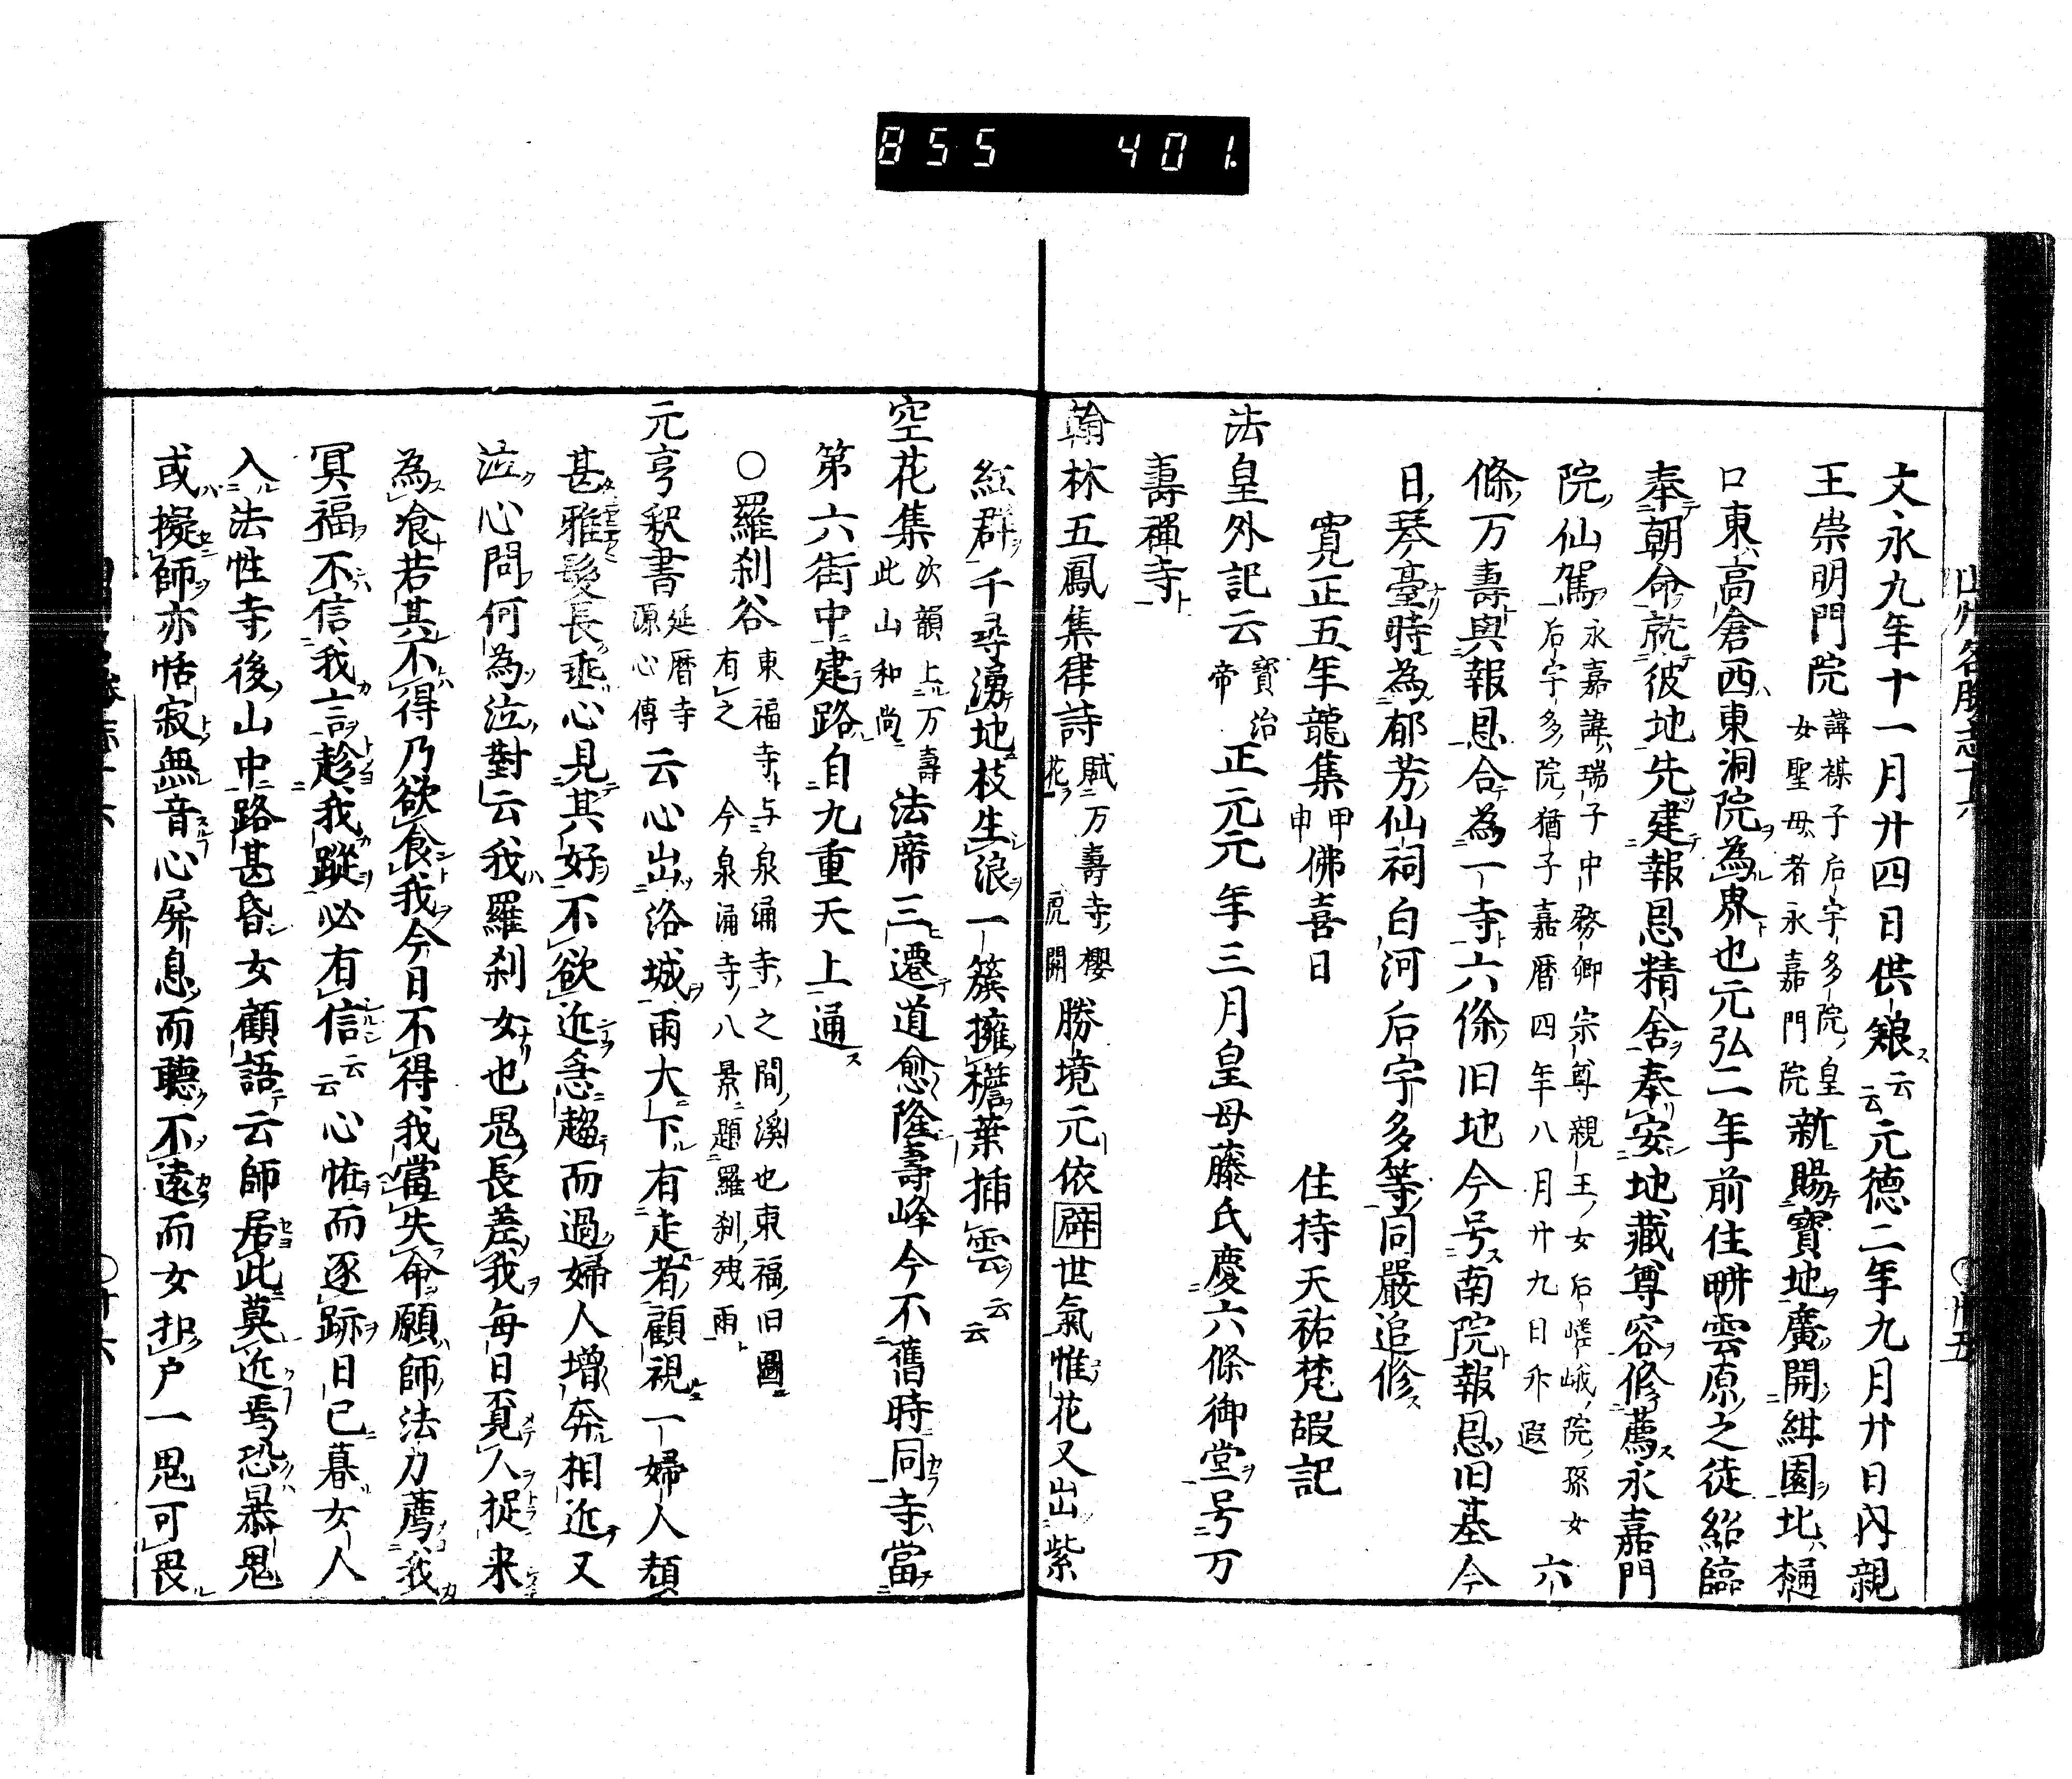 855 401.
山州名勝志十六 〇廿五
文永九年十一月廿四日供娘云云元德二年九月廿日内親
王崇明門院諱禖子后宇多院皇女聖母者永嘉門院新賜寶地廣開紺園北樋
口東高倉西東洞院為界也元弘二年前住畊雲原之徒紹臨
奉朝命就彼地先建報恩精舍奉安地藏尊容修薦永嘉門
院仙駕永嘉諱瑞子中務卿宗尊親王女后嵯峨院孫女后宇多院猶子嘉暦四年八月廿九日升遐六
條万壽與報恩合為一寺六條旧地今号南院報恩旧基今
日琴臺時為郁芳仙祠白河后宇多等同嚴追修
寛正五年龍集甲申佛喜日 住持天祐梵嘏記
法皇外記云寶治帝正元元年三月皇母藤氏慶六條御堂号万
壽禪寺
翰林五鳳集律詩賦万壽寺櫻花 開勝境元依辟世氣惟花又出紫
紅群千尋湧地枝生浪一簇擁檐葉插雲云云
空花集次韻上万壽此山和尚法席三遷道愈隆壽峰今不舊時同寺當
第六街中建路自九重天上通
〇羅刹谷東福寺与泉涌寺之間溪也東福旧圖有之今泉涌寺八景題羅刹殘雨
元亨釈書延暦寺源心傳云心出洛城雨大下有走者顧視一婦人顔
甚雅髮長垂心見其好不欲近急趨而過婦人增奔相近又
泣心問何為泣對云我羅刹女也鬼長差我每日覓人捉来
為飡若其不得乃欲食我今日不得我當失命願師法力薦我
冥福不信我言趁我蹤必有信云云心恠而逐跡日已暮女人
入法性寺後山中路甚昏女顧語云師居此莫近焉恐暴鬼
或擬師亦恬寂無音心屏息而聽不遠而女扣户一鬼可畏